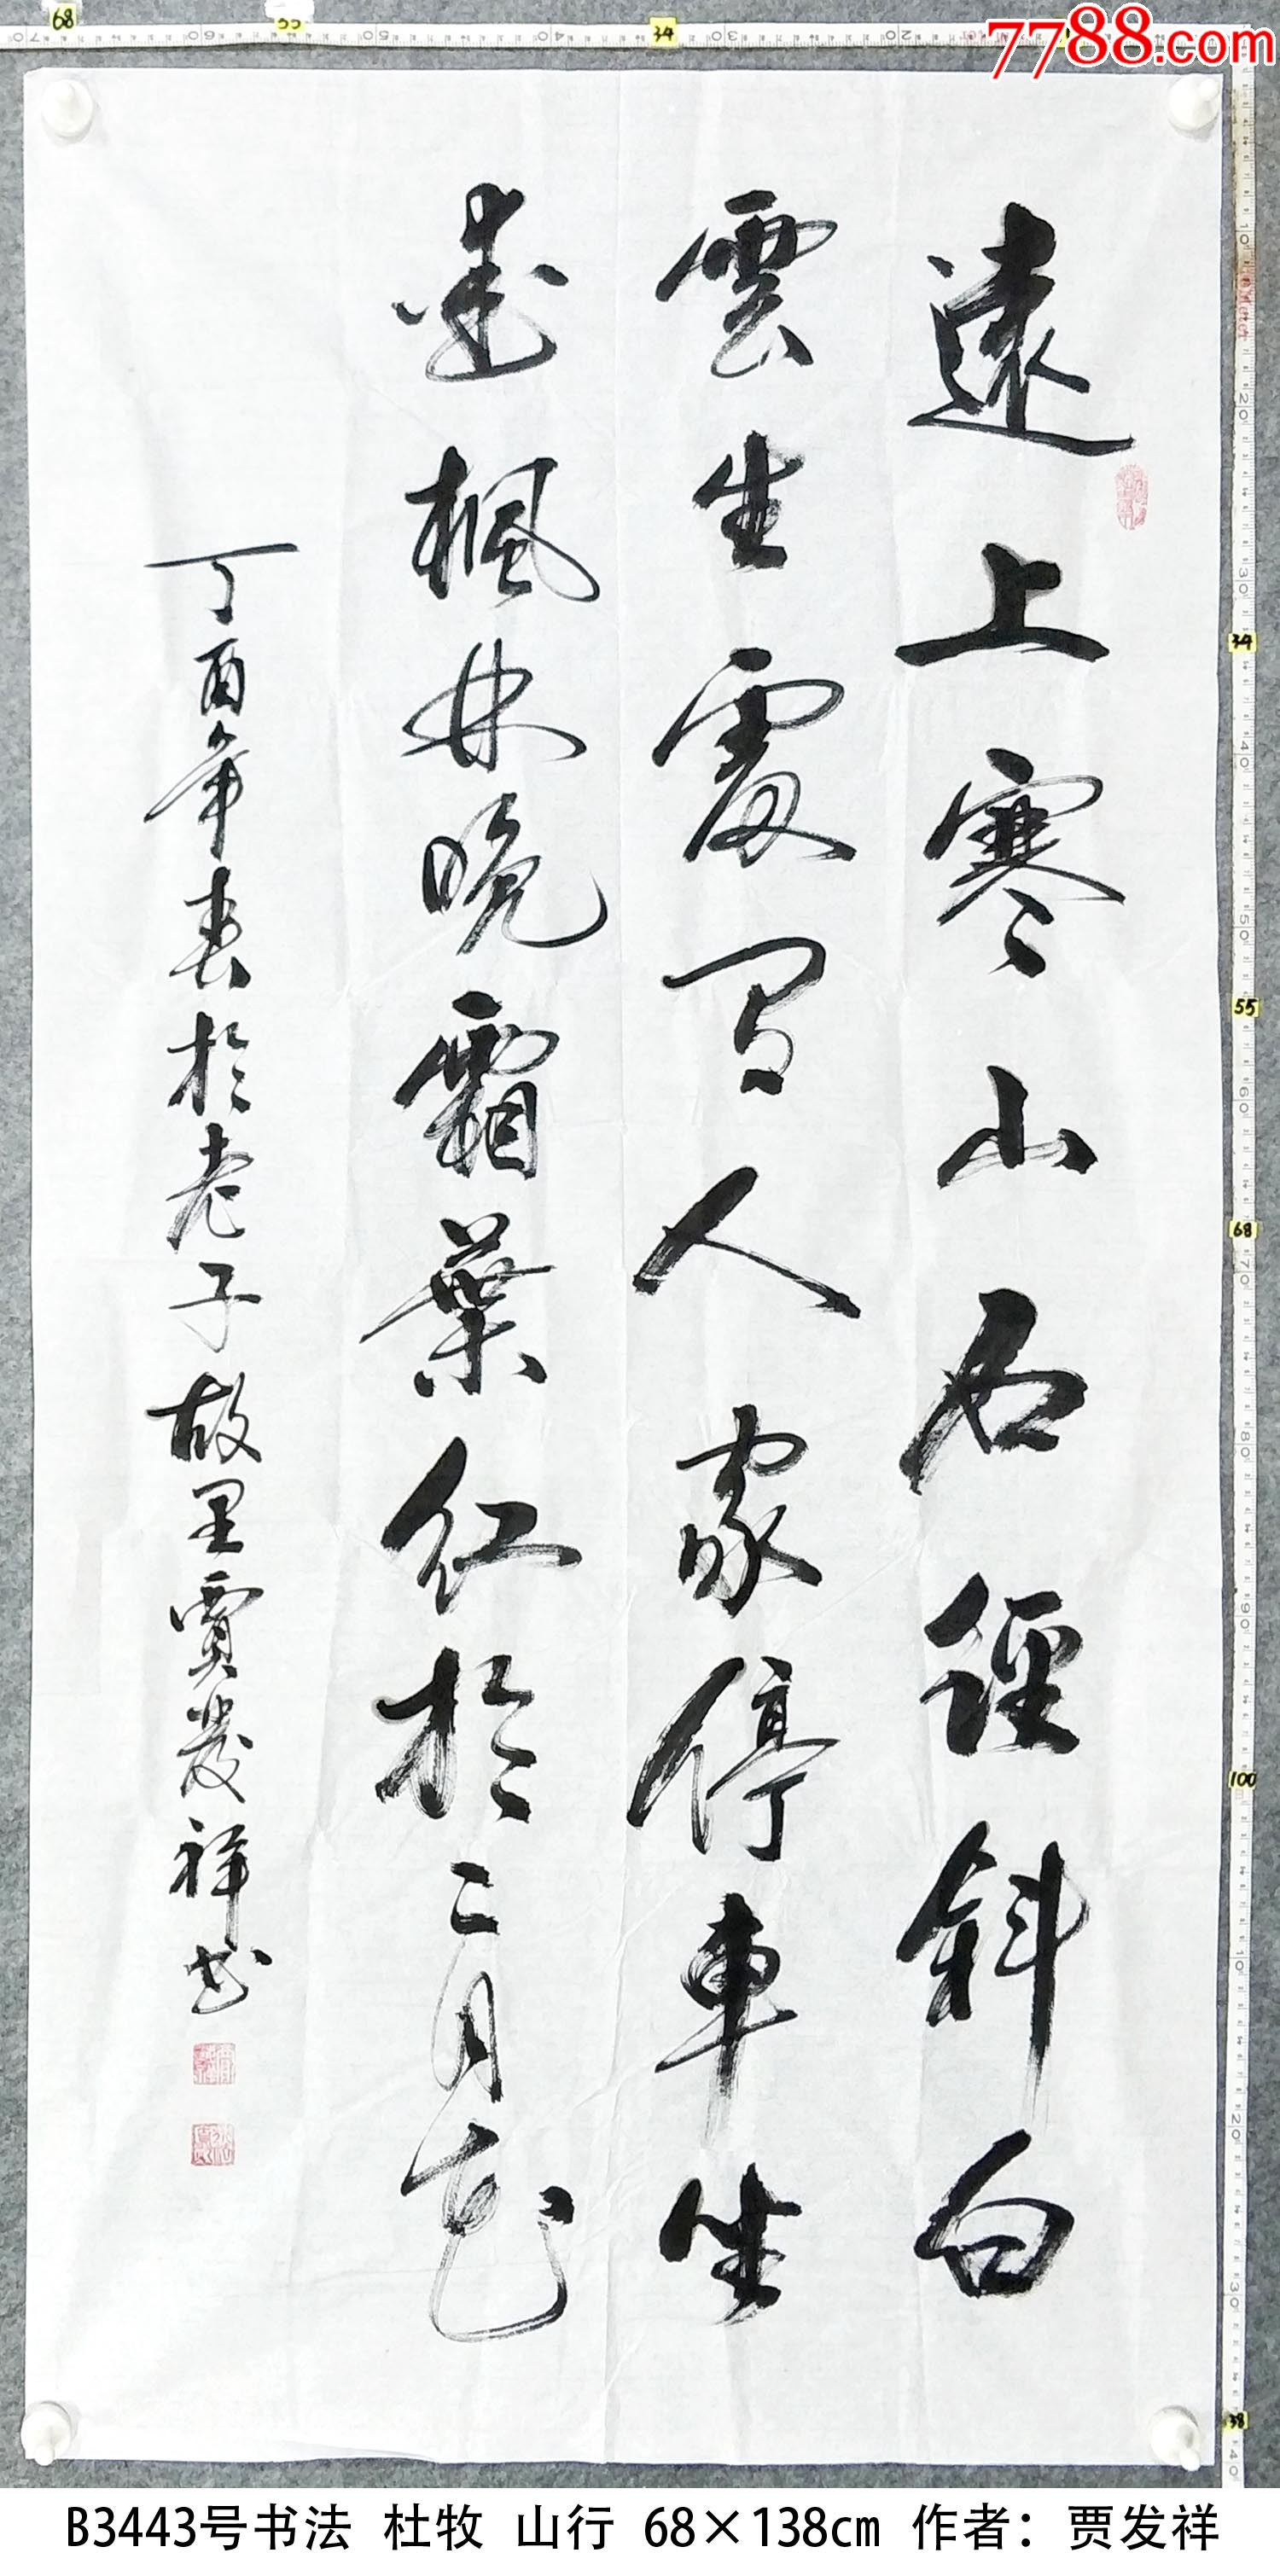 7788.com
遠上寒山石徑斜白
雲生處有人家停車坐
愛楓林晚霜葉红於二月花
丁酉年春於老子故里賈發祥书
B3443号书法 杜牧 山行 68×138cm 作者：贾发祥